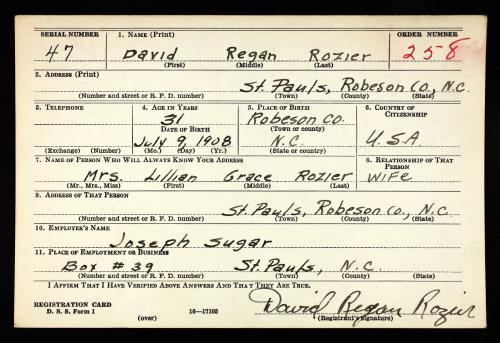 SERIAL NUMBER 1. NAME (Print) ORDER NUMBER
47 David Regan Rozier 258
(First) (Middle) (Last)
2. ADDRESS (Print)
St. Pauls, Robeson Co., N.C.
(Number and street or R. F. D. number) (Town) (County) (State)
3. TELEPHONE 4. AGE IN YEARS 5. PLACE OF BIRTH 6. COUNTRY OF CITIZENSHIP
31 Robeson Co.
DATE OF BIRTH (Town or county)
July 9, 1908 N.C. U.S.A
(Exchange) (Number) (Mo.) (Day) (Yr.) (State or country)
7. NAME OF PERSON WHO WILL ALWAYS KNOW YOUR ADDRESS 8. RELATIONSHIP OF THAT PERSON
Mrs. Lillian Grace Rozier Wife
(Mr., Mrs., Miss) (First) (Middle) (Last)
9. ADDRESS OF THAT PERSON
St. Pauls, Robeson Co., N.C.
(Number and street or R. F. D. number) (Town) (County) (State)
10. EMPLOYER'S NAME
Joseph Sugar
11. PLACE OF EMPLOYMENT OR BUSINESS
Box # 39 St. Pauls, N.C.
(Number and street or R. F. D. number) (Town) (County) (State)
I AFFIRM THAT I HAVE VERIFIED ABOVE ANSWERS AND THAT THEY ARE TRUE.
REGISTRATION CARD David Regan Rozier
D. S. S. Form 1 (over) 16—17105 (Registrant's signature)